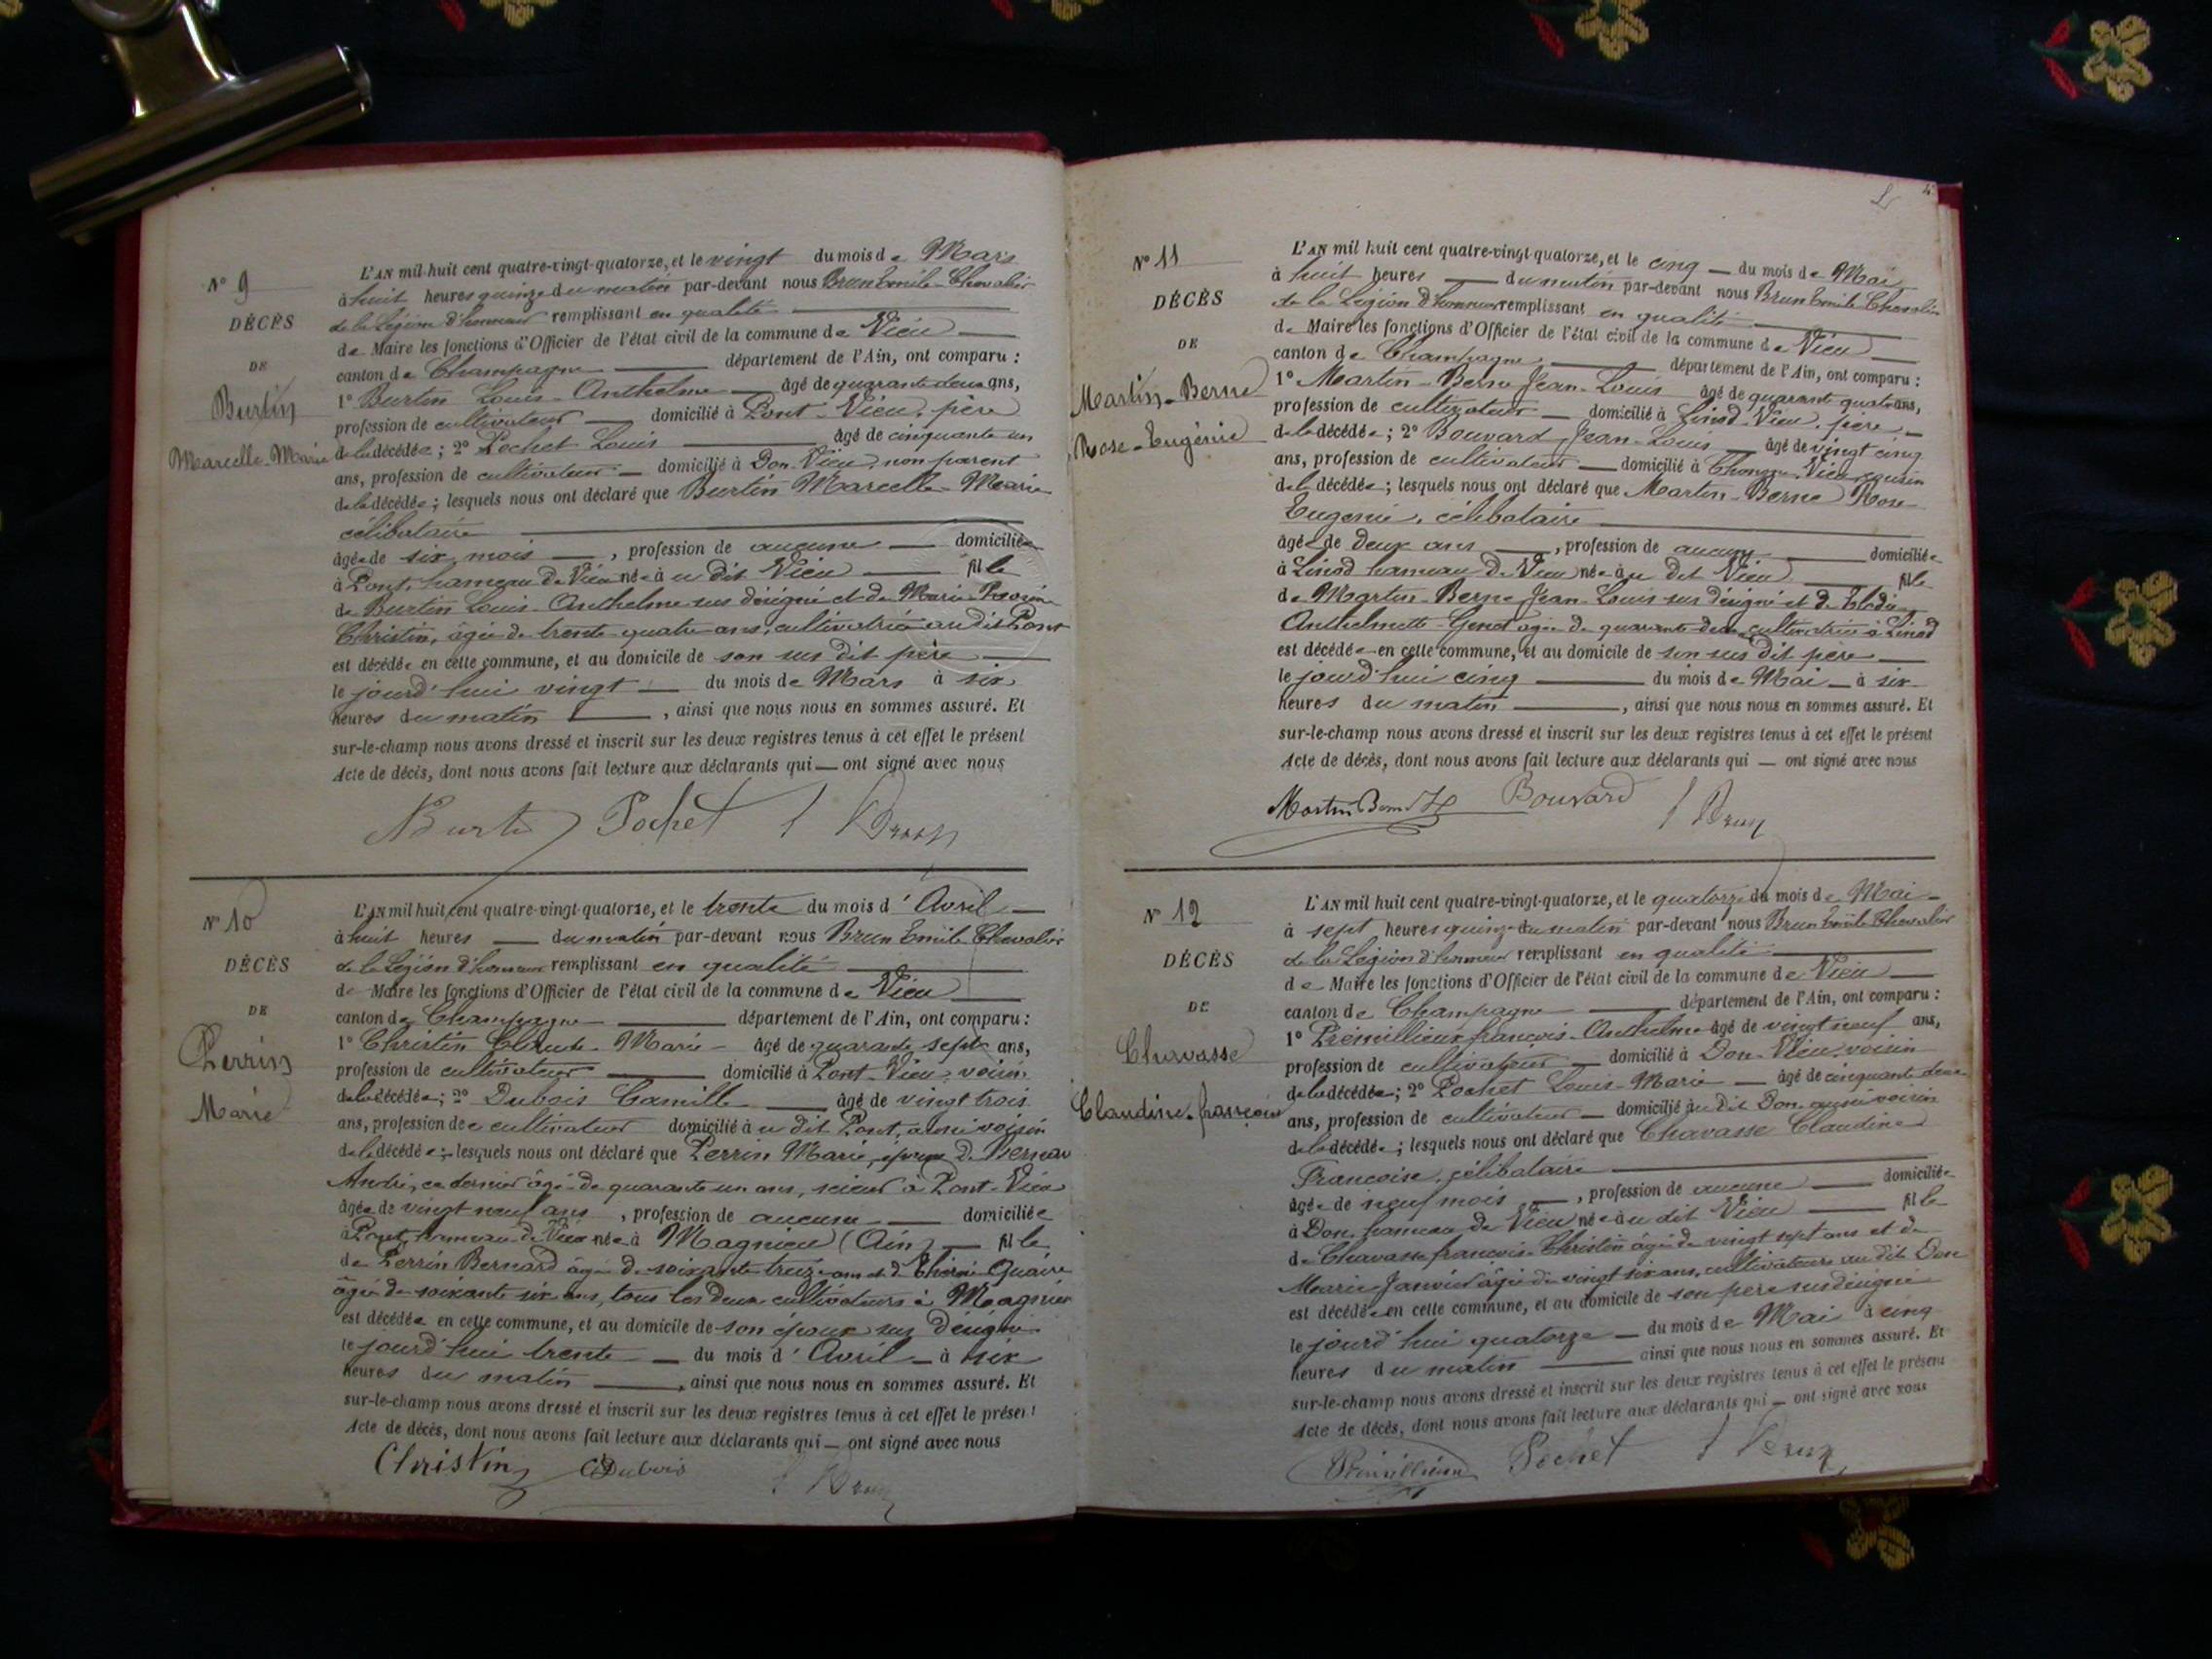 N° 9
DÉCÈS
DE
Burtin
Marcelle-Marie
L'AN mil huit cent quatre-vingt-quatorze, et le vingt du mois de Mars
à huit heures quinze du matin par-devant nous Brun Emile Chevalier
de la Légion d'honneur remplissant en qualité
de Maire les fonctions d'Officier de l'état civil de la commune de Vieu
canton de Champagne département de l'Ain, ont comparu :
1° Burtin Louis-Anthelme âgé de quarante deux ans,
profession de cultivateur domicilié à Pont-Vieu, père
de la décédée ; 2° Pochet Louis âgé de cinquante un
ans, profession de cultivateur domicilié à Don-Vieu, non parent
de la décédée ; lesquels nous ont déclaré que Burtin Marcelle-Marie
célibataire
âgée de six mois , profession de aucune domiciliée
à Pont, hameau de Vieu née à u dit Vieu fille
de Burtin Louis-Anthelme sus désigné et de Marie
Christin, âgée de trente-quatre ans, cultivatrice au dit Pont
est décédée en cette commune, et au domicile de son sus dit père
le jourd'hui vingt du mois de Mars à six
heures du matin , ainsi que nous nous en sommes assuré. Et
sur-le-champ nous avons dressé et inscrit sur les deux registres tenus à cet effet le présent
Acte de décès, dont nous avons fait lecture aux déclarants qui — ont signé avec nous
Burtin Pochet Brun
N° 10
DÉCÈS
DE
Perrin
Marie
L'AN mil huit cent quatre-vingt-quatorze, et le trente du mois d'Avril
à huit heures — du matin par-devant nous Brun Emile Chevalier
de la Légion d'honneur remplissant en qualité
de Maire les fonctions d'Officier de l'état civil de la commune de Vieu
canton de Champagne département de l'Ain, ont comparu :
1° Christin Claude-Marie âgé de quarante sept ans,
profession de cultivateur domicilié à Pont-Vieu, voisin
de la décédée ; 2° Dubois Camille âgé de vingt trois
ans, profession de cultivateur domicilié à u dit Pont, aussi voisin
de la décédée ; lesquels nous ont déclaré que Perrin Marie, épouse de
André, ce dernier âgé de quarante un ans, scieur à Pont-Vieu
âgée de vingt neuf ans , profession de aucune domiciliée
à Pont, hameau de Vieu née à Magnieu (Ain) fille
de Perrin Bernard âgé de soixante treize ans et de
âgée de soixante six ans, tous les deux cultivateurs à Magnieu
est décédée en cette commune, et au domicile de son époux sus désigné
le jourd'hui trente du mois d'Avril à six
heures du matin , ainsi que nous nous en sommes assuré. Et
sur-le-champ nous avons dressé et inscrit sur les deux registres tenus à cet effet le présent
Acte de décès, dont nous avons fait lecture aux déclarants qui — ont signé avec nous
Christin CDubois Brun
4
N° 11
DÉCÈS
DE
Martin-Berne
Rose-Eugénie
L'AN mil huit cent quatre-vingt-quatorze, et le cinq du mois de Mai
à huit heures — du matin par-devant nous Brun Emile Chevalier
de la Légion d'honneur remplissant en qualité
de Maire les fonctions d'Officier de l'état civil de la commune de Vieu
canton de Champagne département de l'Ain, ont comparu :
1° Martin-Berne Jean-Louis âgé de quarante quatre ans,
profession de cultivateur domicilié à Linod-Vieu, père
de la décédée ; 2° Bouvard Jean-Louis âgé de vingt cinq
ans, profession de cultivateur domicilié à Vieu, cousin
de la décédée ; lesquels nous ont déclaré que Martin-Berne Rose
Eugénie, célibataire
âgée de deux ans , profession de aucune domiciliée
à Linod hameau de Vieu née à u dit Vieu fille
de Martin-Berne Jean-Louis sus désigné et de
Anthelmette Genet âgée de quarante deux, cultivatrice à Linod
est décédée en cette commune, et au domicile de son sus dit père
le jourd'hui cinq du mois de Mai à six
heures du matin , ainsi que nous nous en sommes assuré. Et
sur-le-champ nous avons dressé et inscrit sur les deux registres tenus à cet effet le présent
Acte de décès, dont nous avons fait lecture aux déclarants qui — ont signé avec nous
Martin Bouvard Brun
N° 12
DÉCÈS
DE
Chavasse
Claudine-françoise
L'AN mil huit cent quatre-vingt-quatorze, et le quatorze du mois de Mai
à sept heures quinze du matin par-devant nous Brun Emile Chevalier
de la Légion d'honneur remplissant en qualité
de Maire les fonctions d'Officier de l'état civil de la commune de Vieu
canton de Champagne département de l'Ain, ont comparu :
1° Prémillieux françois-Anthelme âgé de vingt neuf ans,
profession de cultivateur domicilié à Don-Vieu, voisin
de la décédée ; 2° Pochet Louis-Marie âgé de cinquante deux
ans, profession de cultivateur domicilié àu dit Don aussi voisin
de la décédée ; lesquels nous ont déclaré que Chavasse Claudine
Françoise, célibataire
âgée de neuf mois , profession de aucune domiciliée
à Don, hameau de Vieu née àu dit Vieu fille
de Chavasse françois-Christin âgé de vingt sept ans et de
Marie Janvier âgée de vingt six ans, cultivateurs au dit Don
est décédée en cette commune, et au domicile de son père sus désigné
le jourd'hui quatorze du mois de Mai à cinq
heures du matin ainsi que nous nous en sommes assuré. Et
sur-le-champ nous avons dressé et inscrit sur les deux registres tenus à cet effet le présent
Acte de décès, dont nous avons fait lecture aux déclarants qui — ont signé avec nous
Prémillieux Pochet Brun